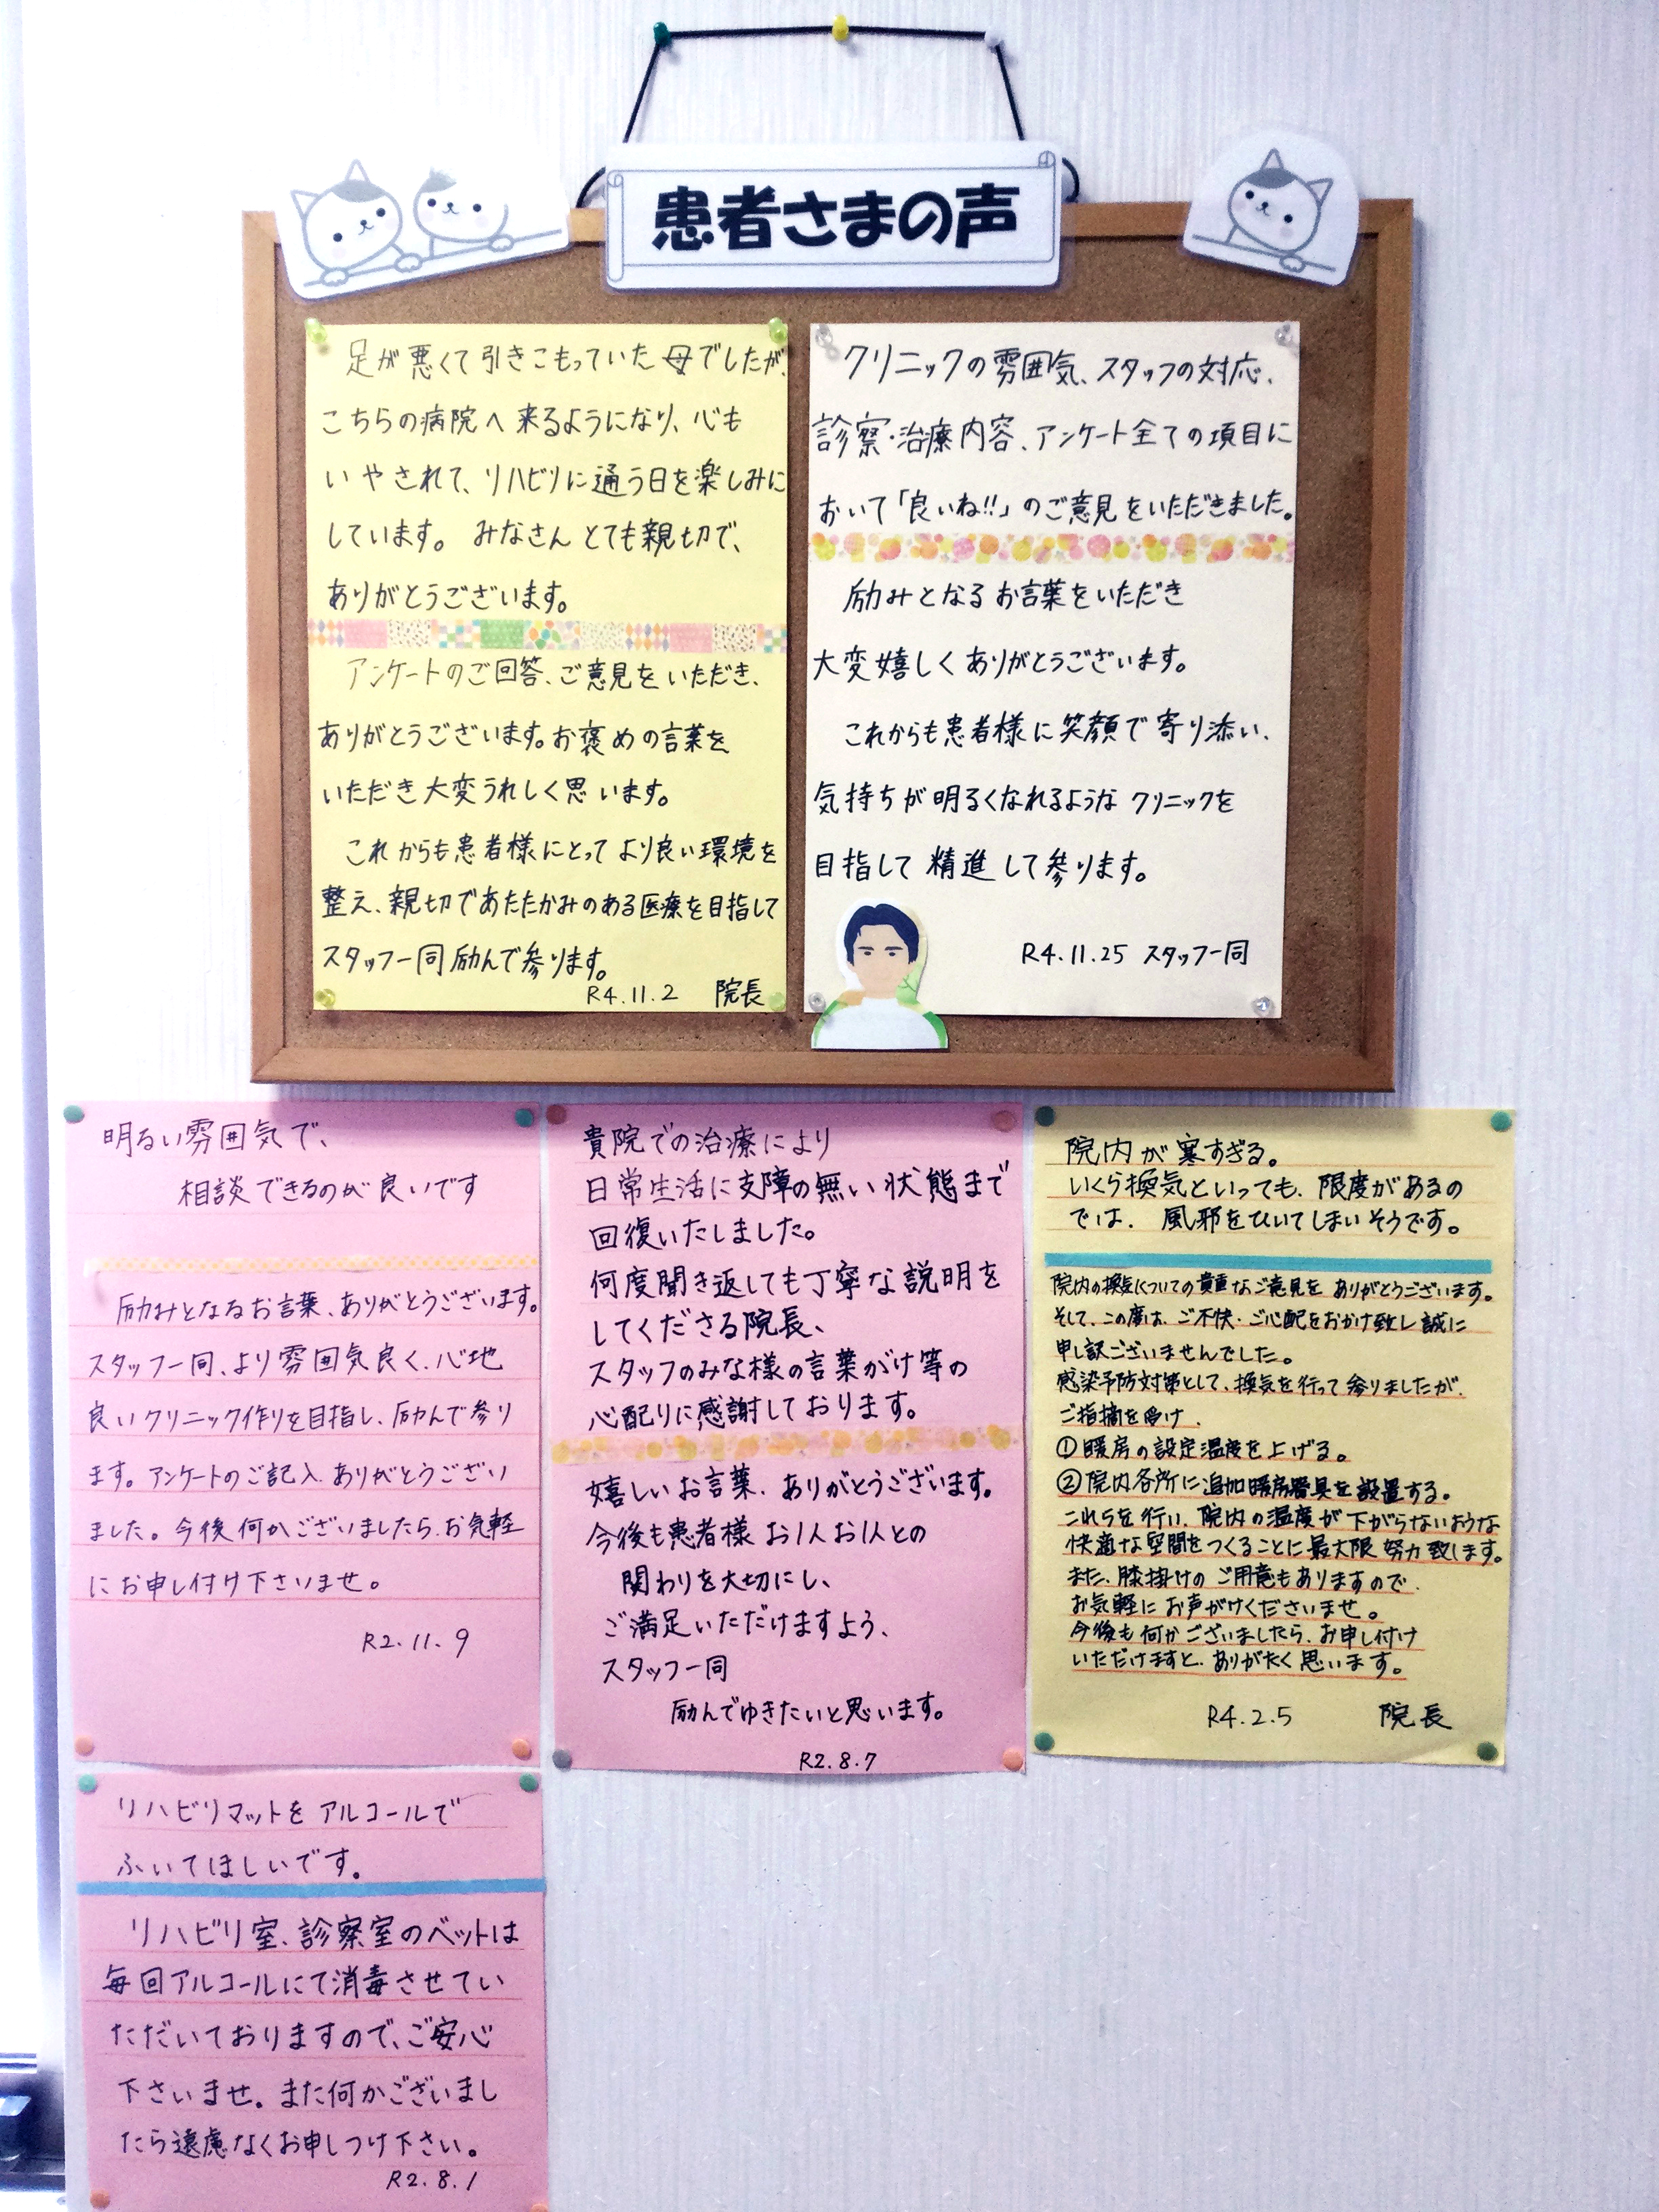 患者さまの声
足が悪くて引きこもっていた母でしたが、
こちらの病院へ来るようになり、心も
いやされて、リハビリに通う日を楽しみに
しています。みなさんとても親切で、
ありがとうございます。
アンケートのご回答、ご意見をいただき、
ありがとうございます。お褒めの言葉を
いただき大変うれしく思います。
これからも患者様にとってより良い環境を
整え、親切であたたかみのある医療を目指して
スタッフ一同励んで参ります。
R4.11.2 院長
クリニックの雰囲気、スタッフの対応、
診察・治療内容、アンケート全ての項目に
おいて「良いね!!」のご意見をいただきました。
励みとなるお言葉をいただき
大変嬉しくありがとうございます。
これからも患者様に笑顔で寄り添い、
気持ちが明るくなれるようなクリニックを
目指して精進して参ります。
R4.11.25 スタッフ一同
明るい雰囲気で、
相談できるのが良いです
励みとなるお言葉、ありがとうございます。
スタッフ一同、より雰囲気良く、心地
良いクリニック作りを目指し、励んで参り
ます。アンケートのご記入、ありがとうござい
ました。今後何かございましたら、お気軽
にお申し付け下さいませ。
R2.11.9
貴院での治療により
日常生活に支障の無い状態まで
回復いたしました。
何度聞き返しても丁寧な説明を
してくださる院長、
スタッフのみな様の言葉がけ等の
心配りに感謝しております。
嬉しいお言葉、ありがとうございます。
今後も患者様お1人お1人との
関わりを大切にし、
ご満足いただけますよう、
スタッフ一同
励んでゆきたいと思います。
R2.8.7
院内が寒すぎる。
いくら換気といっても、限度があるの
では、風邪をひいてしまいそうです。
院内の換気についての貴重なご意見をありがとうございます。
そして、この度は、ご不快・ご心配をおかけ致し誠に
申し訳ございませんでした。
感染予防対策として、換気を行って参りましたが、
ご指摘を受け、
①暖房の設定温度を上げる。
②院内各所に追加暖房器具を設置する。
これらを行い、院内の温度が下がらないような
快適な空間をつくることに最大限努力致します。
また、膝掛けのご用意もありますので、
お気軽にお声がけくださいませ。
今後も何かございましたら、お申し付け
いただけますと、ありがたく思います。
R4.2.5 院長
リハビリマットをアルコールで
ふいてほしいです。
リハビリ室、診察室のベットは
毎回アルコールにて消毒させてい
ただいておりますので、ご安心
下さいませ。また何かございまし
たら遠慮なくお申しつけ下さい。
R2.8.1